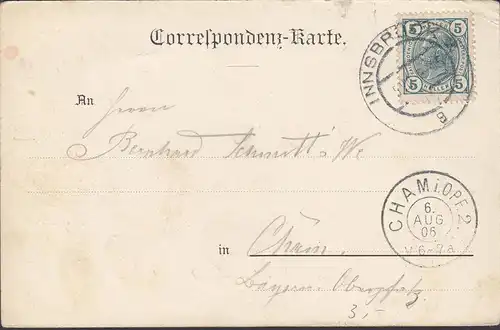 Correspondenz-Karte.
INNSBRU
5 5
5 5
B
An Herrn
Bernhard Schmitt's We
CHAM i. OPF. 2.
6.
AUG
06
V 6-7a
in Cham.
Bayern Oberpfalz
3,-